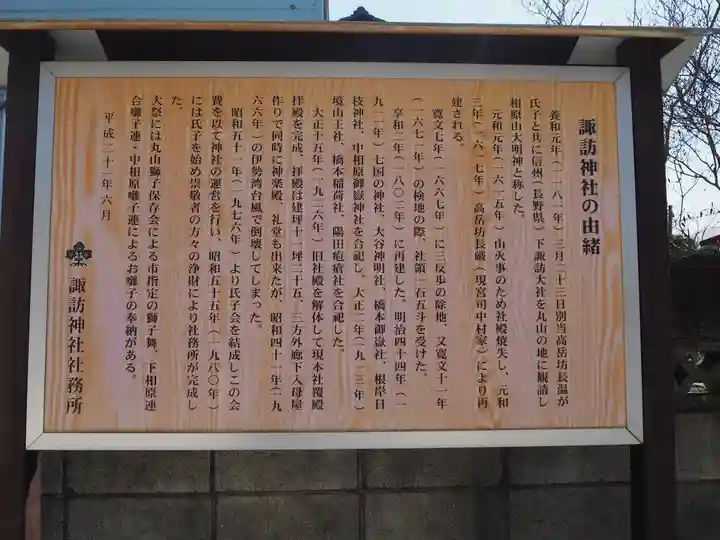 諏訪神社の由緒
養和元年(一一八一年)三月二十三日別当高岳坊長温が
氏子と共に信州(長野県)下諏訪大社を丸山の地に観請し
相原山大明神と称した。
元和元年(一六一五年)山火事のため社殿焼失し、元和
三年(一六一七年)高岳坊長厳(現宮司中村家)により再
建される。
寛文七年(一六六七年)に三反歩の除地、又寛文十一年
(一六七一年)の検地の際、社領一石五斗を受けた。
享和三年(一八〇三年)に再建した。明治四十四年(一
九一一年)七国の神社、大谷神明社、橋本御嶽社、根岸日
枝神社、中相原御嶽神社を合祀し、大正二年(九一三年)
境山王社、橋本稲荷社、陽田疱瘡社を合祀した。
大正十五年(一九二六年)旧社殿を解体して現本社覆殿
拝殿を完成、拝殿は建坪十一坪二十五、三方外廊下入母屋
作りで同時に神楽殿、礼堂も出来たが、昭和四十一年(一九
六六年)の伊勢湾台風で倒壊してしまった。
昭和五十一年(一九七六年)より氏子会を結成しこの会
費を以て神社の運営を行い、昭和五十五年(一九八〇年)
には氏子を始め崇敬者の方々の浄財により社務所が完成し
た。
大祭には丸山獅子保存会による市指定の獅子舞、下相原連
合囃子連・中相原囃子連によるお囃子の奉納がある。
平成二十一年六月
諏訪神社社務所